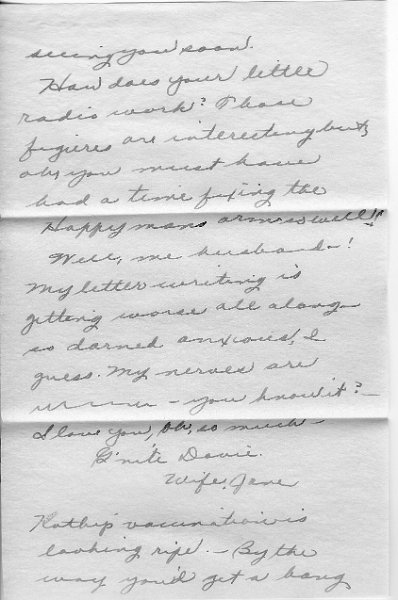 seeing you soon.
How does your little
radio work? Those
fugieres are interesting but,
oh, you must have
had a time fixing the
Happy mans arms well!!
Well, me husband - !
My letter writing is
getting worse all along -
so darned anxious, I
guess. My nerves are
- you know it? -
I love you, Oh, so much -
G'nite Davie.
Wife, Jane
Kathy's vaccination is
looking ripe. - By the
way you'd get a bang